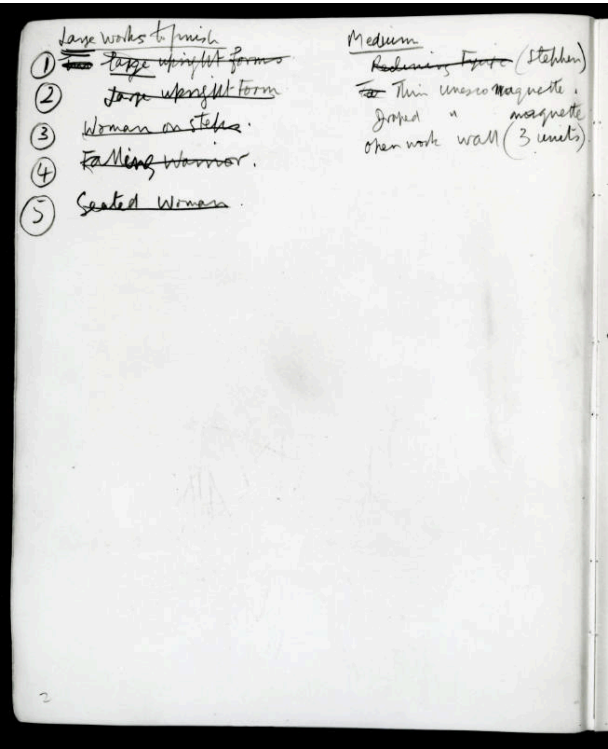 Large works to finish
① Two large upright forms
② Large upright Form
③ Woman on steps.
④ Falling Warrior.
⑤ Seated Woman.
Medium
Reclining Figure (Stephen)
Thin unesco maquette.
Draped " maquette
open work wall (3 units).
2